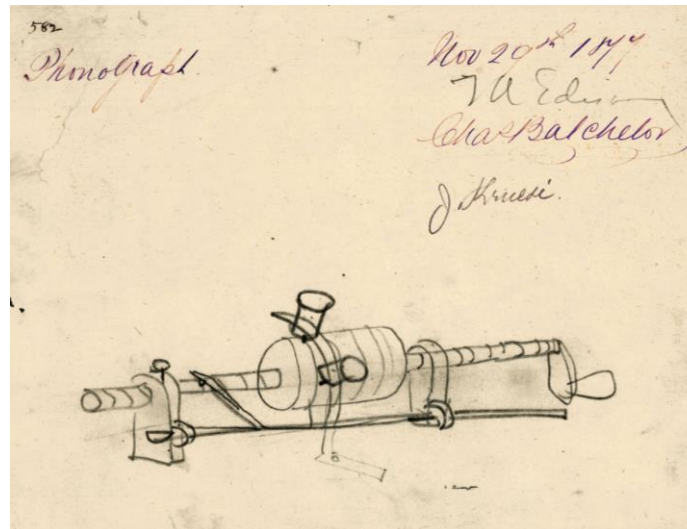 582
Phonograph.
Nov 29th 1877
T A Edison
Chas Batchelor
J Kruesi.